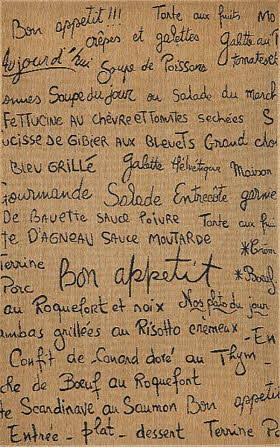 Bon appetit!!! Tarte aux fruits
crêpes et galettes Galette au
Aujourd'hui tomates et
Soupe de Poissons
Soupe du jour ou Salade du march
FETTUCINE AU CHÈVRE ET TOMATES SECHÉES S
UCISSE DE GIBIER AUX BLEUETS Grand cho
BLEU GRILLÉ Galette Helvétique Maison
ourmande Salade Entrecôte garnie
DE BAVETTE SAUCE POIVRE Tarte au
TE D'AGNEAU SAUCE MOUTARDE
Terrine Bon appetit *Boeuf
Porc
au Roquefort et noix Nos plats du jour
ambas grillées au Risotto crémeux - En
Confit de Canard doré au Thym -
che de Bœuf au Roquefort
te Scandinave au Saumon Bon appetit
Entrée - plat - dessert Terrine P